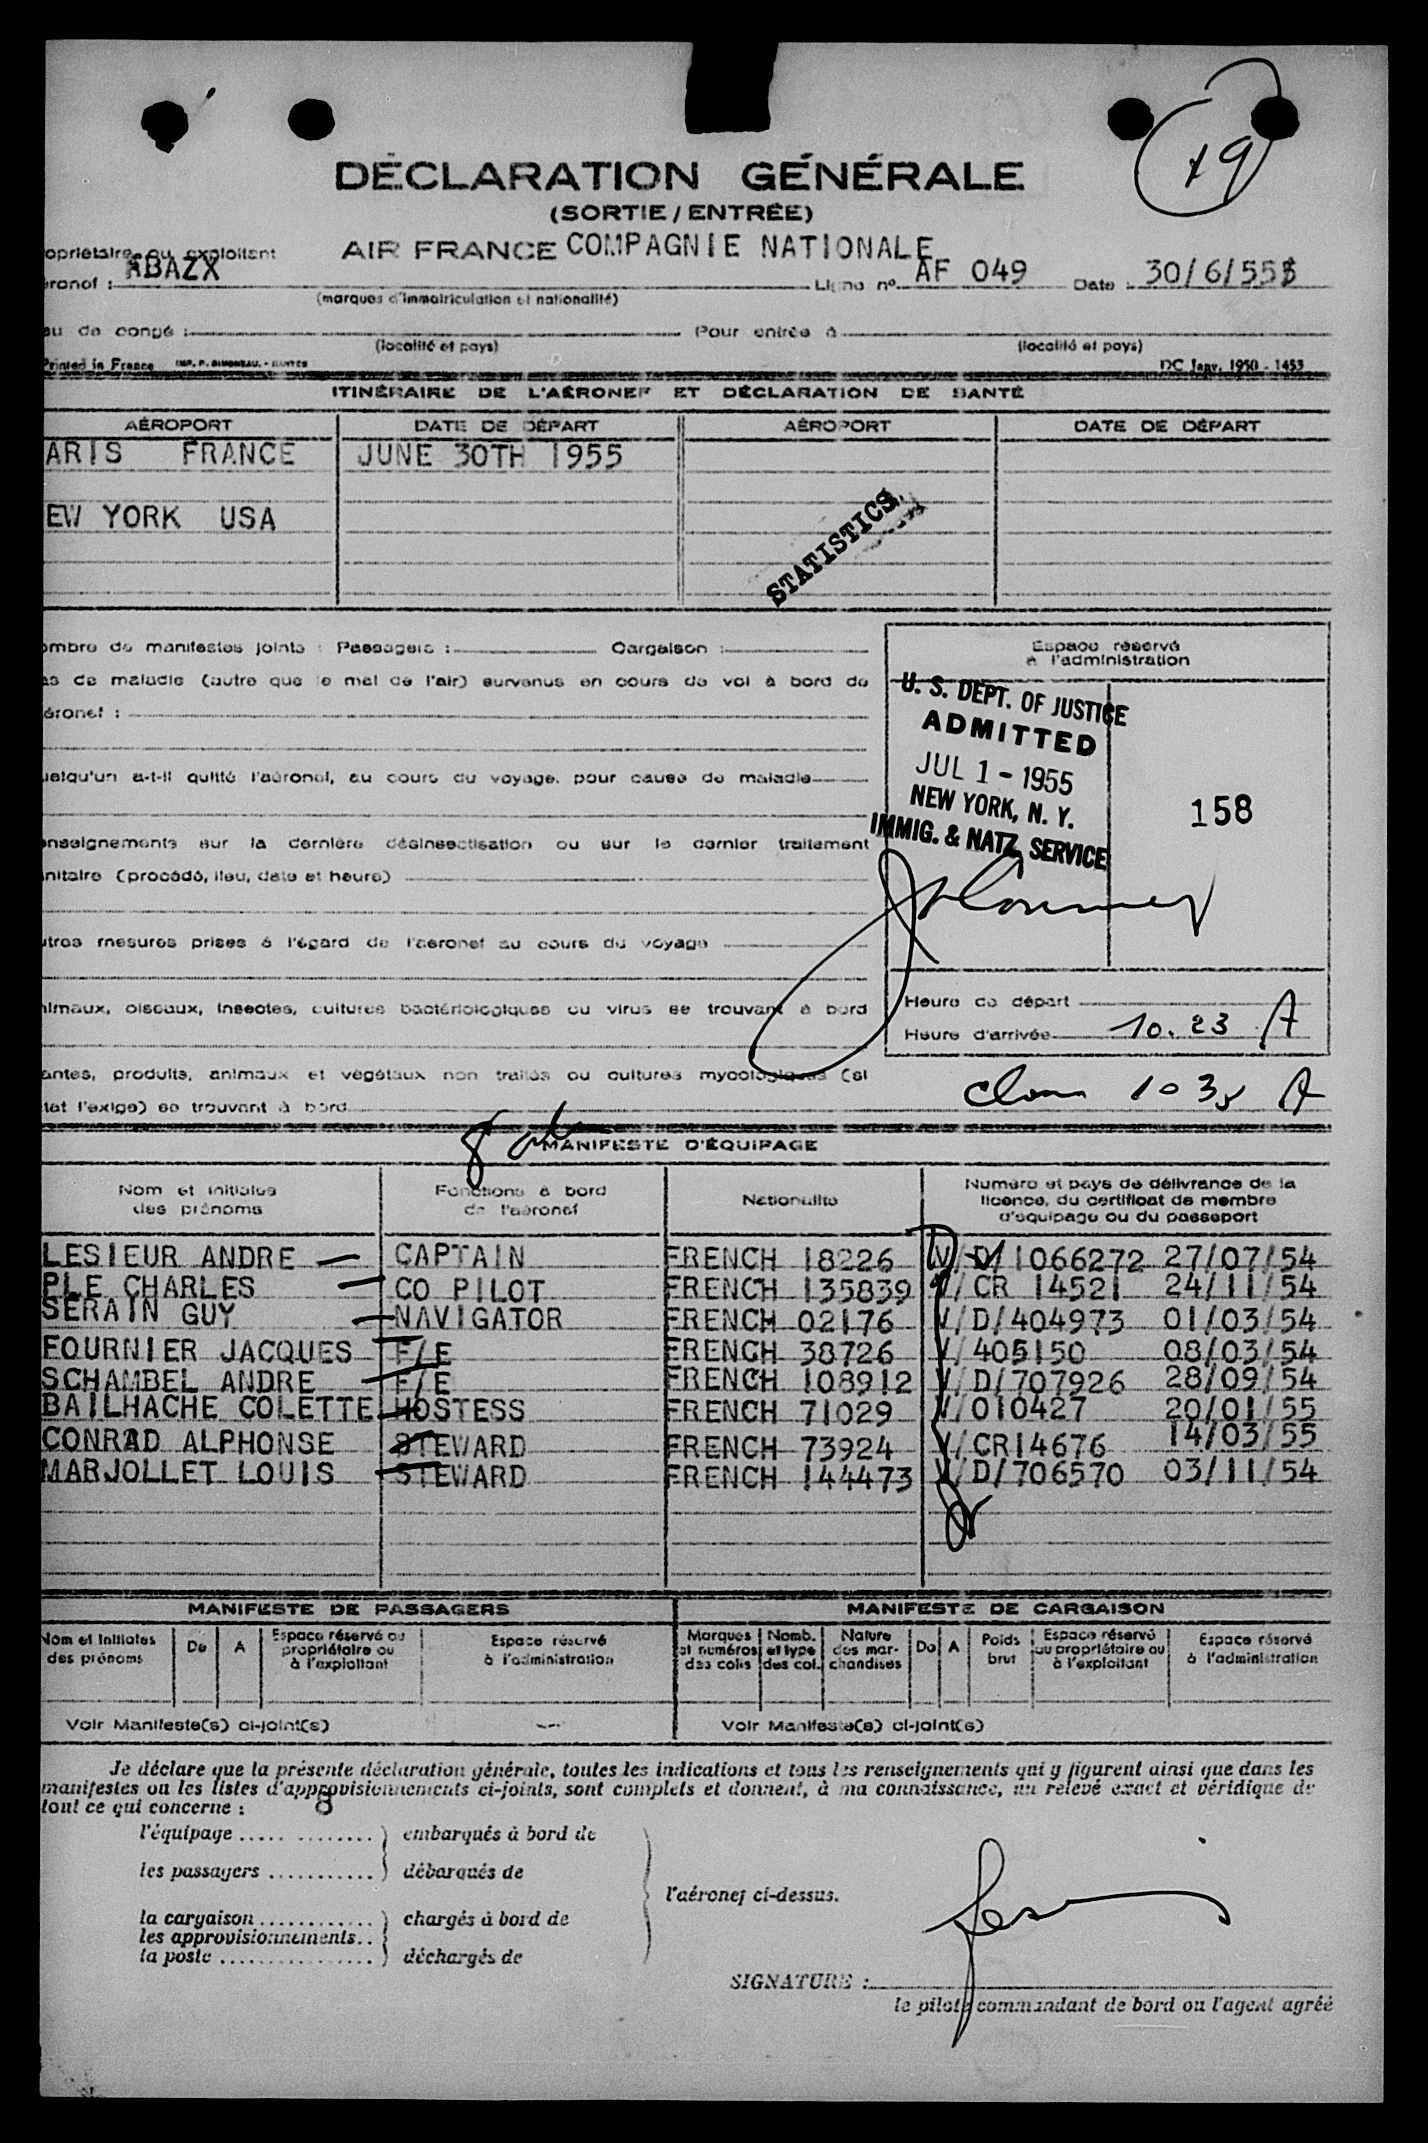 19
DÉCLARATION GÉNÉRALE
(SORTIE / ENTRÉE)
opriétaire ou exploitant AIR FRANCE COMPAGNIE NATIONALE
éronef : ABAZX Ligne n° AF 049 Date : 30/6/55
(marques d'immatriculation et nationalité)
eu de congé : Pour entrée à
(localité et pays) (localité et pays)
Printed in France IMP. P. GIMONEAU. - NANTES DC Janv. 1950 - 1453
ITINÉRAIRE DE L'AÉRONEF ET DÉCLARATION DE SANTÉ
AÉROPORT DATE DE DÉPART AÉROPORT DATE DE DÉPART
ARIS FRANCE JUNE 30TH 1955
EW YORK USA
STATISTICS
ombre de manifestes joints : Passagers : Cargaison :
as de maladie (autre que le mal de l'air) survenus en cours de vol à bord de
éronef :
uelqu'un a-t-il quitté l'aéronef, au cours du voyage, pour cause de maladie
enseignements sur la dernière désinsectisation ou sur le dernier traitement
nitaire (procédé, lieu, date et heure)
utres mesures prises à l'égard de l'aéronef au cours du voyage
nimaux, oiseaux, insectes, cultures bactériologiques ou virus se trouvant à bord
antes, produits, animaux et végétaux non traités ou cultures mycologiques (si
tat l'exige) se trouvant à bord
Espace réservé
à l'administration
U. S. DEPT. OF JUSTICE
ADMITTED
JUL 1 - 1955
NEW YORK, N. Y.
IMMIG. & NATZ. SERVICE
158
Heure de départ
Heure d'arrivée 10.23 A
1035 A
8
MANIFESTE D'ÉQUIPAGE
Nom et initiales des prénoms Fonctions à bord de l'aéronef Nationalité Numéro et pays de délivrance de la licence, du certificat de membre d'équipage ou du passeport
LESIEUR ANDRE CAPTAIN FRENCH 18226 V/D/1066272 27/07/54
PLE CHARLES CO PILOT FRENCH 135839 V/CR 14521 24/11/54
SERAIN GUY NAVIGATOR FRENCH 02176 V/D/404973 01/03/54
FOURNIER JACQUES F/E FRENCH 38726 V/405150 08/03/54
SCHAMBEL ANDRE F/E FRENCH 108912 V/D/707926 28/09/54
BAILHACHE COLETTE HOSTESS FRENCH 71029 V/010427 20/01/55
CONRAD ALPHONSE STEWARD FRENCH 73924 V/CR14676 14/03/55
MARJOLLET LOUIS STEWARD FRENCH 144473 V/D/706570 03/11/54
MANIFESTE DE PASSAGERS MANIFESTE DE CARGAISON
Nom et initiales des prénoms De A Espace réservé au propriétaire ou à l'exploitant Espace réservé à l'administration Marques et numéros des colis Nomb. et type des col. Nature des marchandises De A Poids brut Espace réservé au propriétaire ou à l'exploitant Espace réservé à l'administration
Voir Manifeste(s) ci-joint(s) Voir Manifeste(s) ci-joint(s)
Je déclare que la présente déclaration générale, toutes les indications et tous les renseignements qui y figurent ainsi que dans les
manifestes ou les listes d'approvisionnements ci-joints, sont complets et donnent, à ma connaissance, un relevé exact et véridique de
tout ce qui concerne :
8
l'équipage ..... ........ } embarqués à bord de
les passagers ........... } débarqués de
l'aéronef ci-dessus.
la cargaison ............ } chargés à bord de
les approvisionnements..
la poste ................ } déchargés de
SIGNATURE :
le pilote commandant de bord ou l'agent agréé